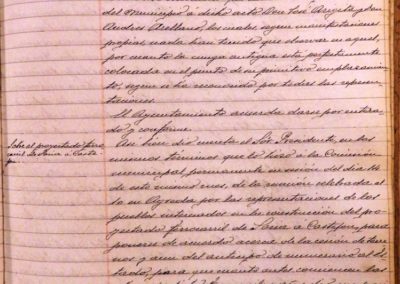 del Municipio á dicho acto Don José Azagita y Don
Andres Arellano, los cuales segun manifestaciones
propias nada han tenido que observar en aquel,
por cuanto la muga antigua está perfectamente
colocada en el punto de su primitivo emplazamien
to, segun é ha reconocido por todos los represen
taciones.
El Ayuntamiento acuerda darse por entera
do y conforme.
Sobre el proyectado ferro
carril de Soria á Caste
jon.
Asi bien dió cuenta el Sor. Presidente, en los
mismos terminos que lo hizo á la Comision
municipal permanente en sesion del dia 14
de este mismo mes, de la reunion celebrada el
10 en Agreda por las representaciones de los
pueblos interesados en la construccion del pro
yectado ferrocarril de Soria á Castejon, para
ponerse de acuerdo acerca de la cesion de terre
nos y aun del anticipo de numerario al Es
tado, para que cuanto antes comiencen las